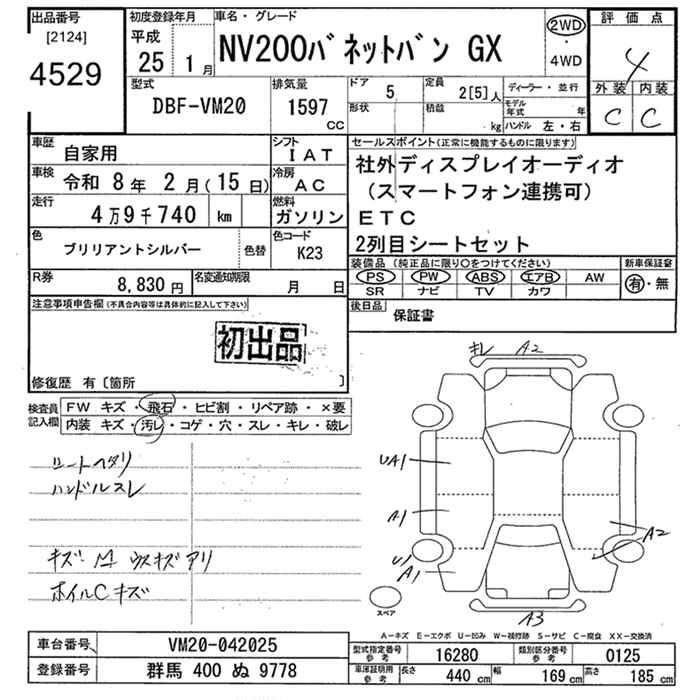 出品番号
[2124]
4529
初度登録年月
平成
25 1月
車名・グレード
NV200バネットバン GX
2WD
・
4WD
評価点
4
外装 内装
C C
型式
DBF-VM20
排気量
1597
CC
ドア
5
定員
2[5]人
形状
積載
kg
ディーラー・並行
モデル年式 年
ハンドル 左・右
車歴
自家用
シフト
IAT
車検
令和 8年 2月(15日)
冷房
AC
走行
4万9千740 km
燃料
ガソリン
色
ブリリアントシルバー
色替
色コード
K23
R券
8,830円
名変通知期限
月 日
セールスポイント(正常に機能するものに限ります)
社外ディスプレイオーディオ
(スマートフォン連携可)
ETC
2列目シートセット
装備品 (純正品に限り○をつけてください)
新車保証書
PS PW ABS エアB AW
SR ナビ TV カワ
有・無
後日品
保証書
注意事項申告欄(不具合内容等は具体的に記入して下さい)
初出品
修復歴 有〔箇所 〕
検査員
記入欄
FW キズ・飛石・ヒビ割・リペア跡・×要
内装 キズ・汚レ・コゲ・穴・スレ・キレ・破レ
シートヘタリ
ハンドルスレ
ウスキズアリ
ホイルCキズ
キレ A2
UA1
A1
A2
U1
A1
A3
スペア
A−キズ E−エクボ U−凹み W−補修跡 S−サビ C−腐食 XX−交換済
車台番号
VM20-042025
登録番号
群馬 400 ぬ 9778
型式指定番号
参考
16280
類別区分番号
参考
0125
車庫証明用
参考
長さ 440 cm
幅 169 cm
高さ 185 cm